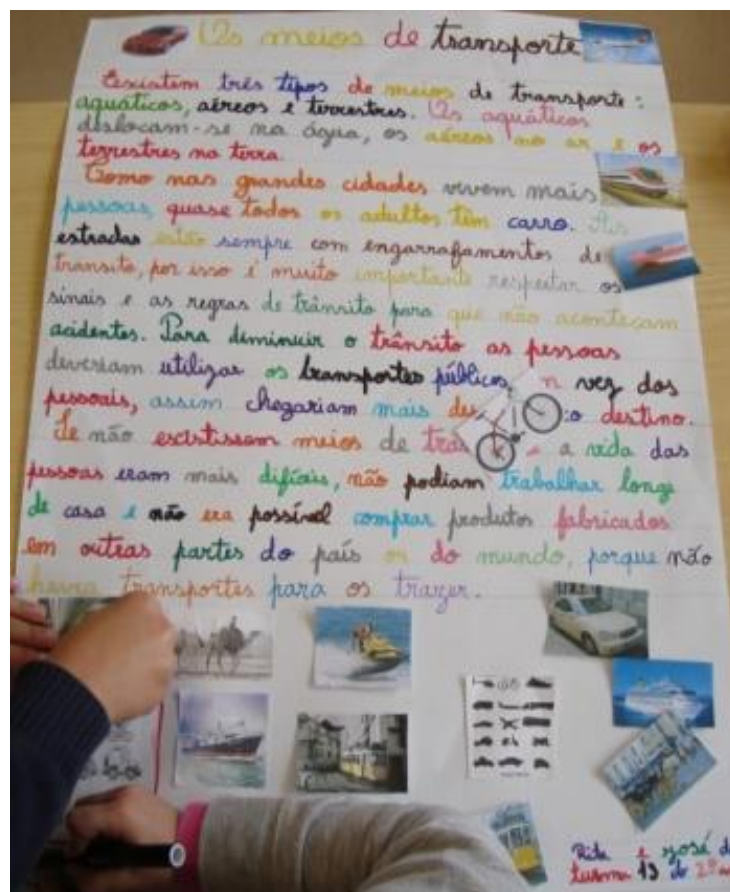 Os meios de transporte
Existem três tipos de meios de transporte:
aquáticos, aéreos e terrestres. Os aquáticos
deslocam-se na água, os aéreos no ar e os
terrestres na terra.
Como nas grandes cidades vivem mais
pessoas, quase todos os adultos têm carro. As
estradas estão sempre com engarrafamentos de
transito, por isso é muito importante respeitar os
sinais e as regras de trânsito para que não aconteçam
acidentes. Para diminuir o trânsito as pessoas
deveriam utilizar os transportes públicos, vez dos
pessoais, assim chegariam mais destino.
Se não existissem meios de a vida das
pessoas eram mais difíceis, não podiam trabalhar longe
de casa e não era possível comprar produtos fabricados
em outras partes do país ou do mundo, porque não
havia transportes para os trazer.
Rita e José
turma 13 do 2º